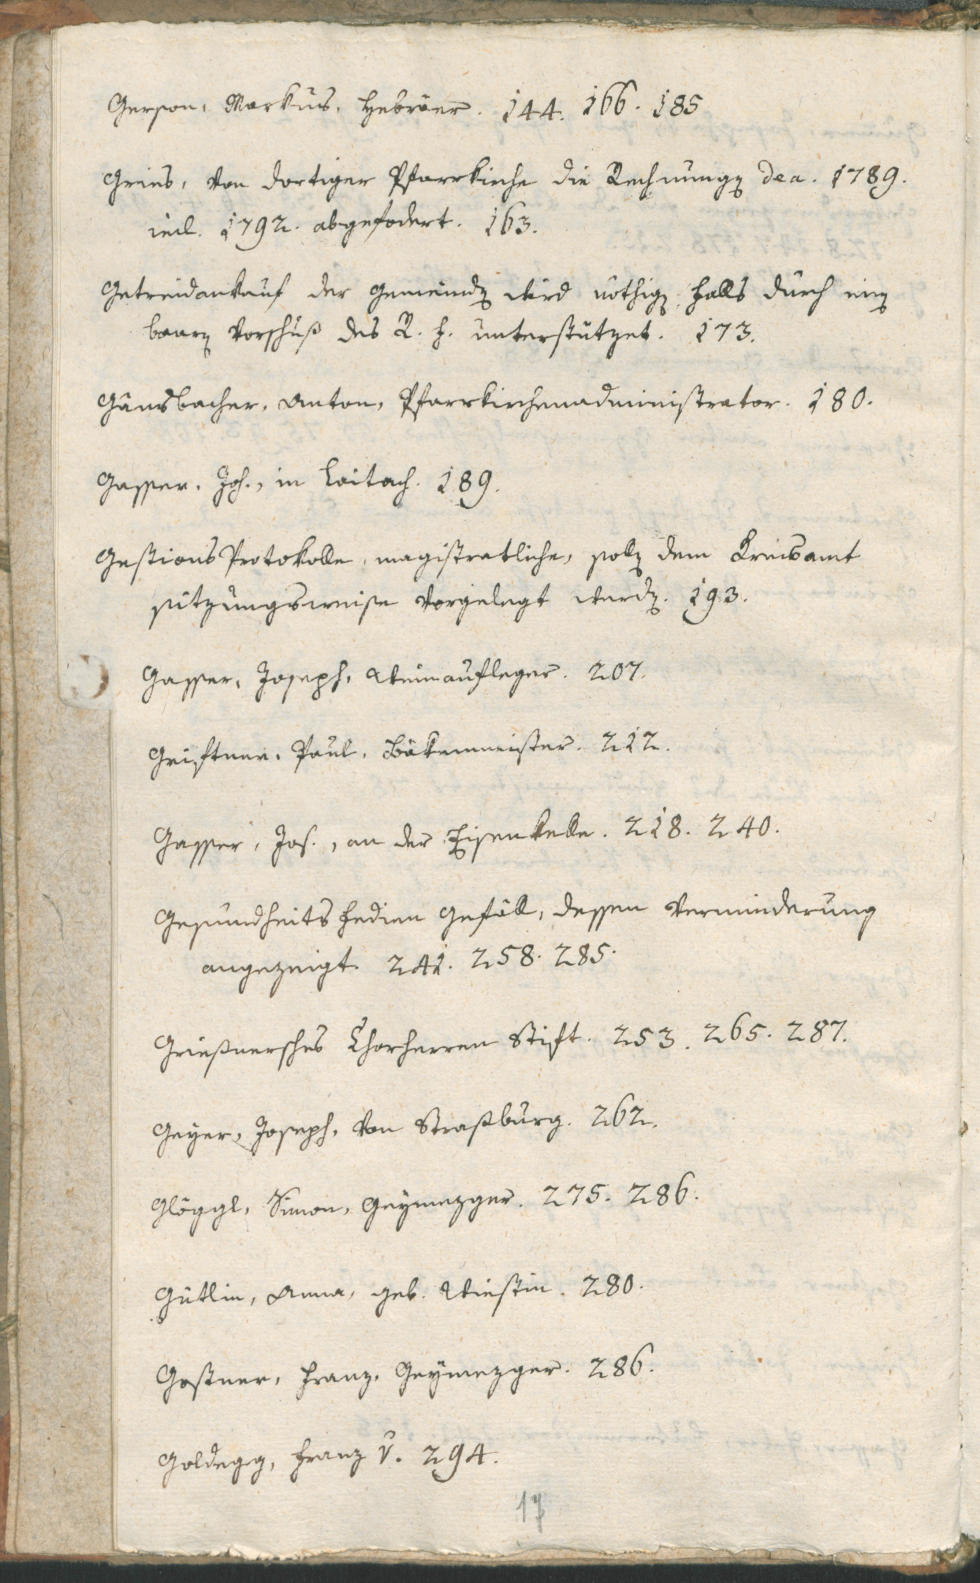 Gerson, Markus, Hebräer. 144. 166. 185
Gries, von dortiger Pfarrkirche die Rechnungen de a. 1789.
incl. 1792. abgefodert. 163.
Getreidankauf der Gemeinden wird nöthigen Falls durch einen
baaren Vorschuß des R. f. unterstützet. 173.
Gänsbacher, Anton, Pfarrkirchenadministrator. 180.
Gasser, Joh., in Laitach. 189.
Gestions Protokolle, magistratliche, sollen dem Kreisamt
sitzungsweise vorgelegt werden. 193.
Gasser, Joseph, Weinaufleger. 207.
Griftner, Paul, Bäkenmeister. 212.
Gasser, Jos., an der Eisenkelle. 218. 240.
Gesundheits Gefäll, dessen Verminderung
angezeigt. 241. 258. 285.
Grießnersches Chorherren Stift. 253. 265. 287.
Geyer, Joseph, von Straßburg. 262.
Glöggl, Simon, Geymezger. 275. 286.
Gütlin, Anna, geb. Wiestin. 280.
Gostner, Franz, Geymezger. 286.
Goldegg, Franz v. 294.
17